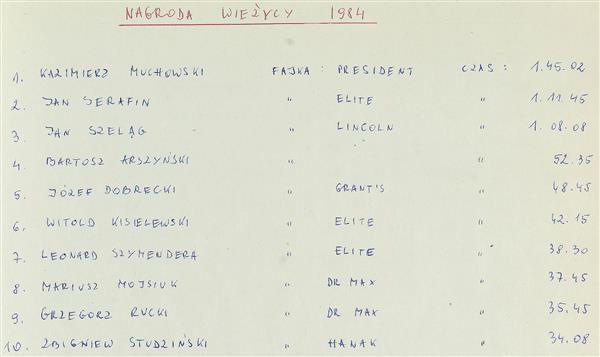 NAGRODA WIEŻYCY 1984
1. KAZIMIERZ MUCHOWSKI FAJKA : PRESIDENT CZAS : 1.45.02
2. JAN SERAFIN " ELITE " 1.11.45
3. JAN SZELĄG " LINCOLN " 1.08.08
4. BARTOSZ ARSZYŃSKI " " 52.35
5. JÓZEF DOBRECKI " GRANT'S " 48.45
6. WITOLD KISIELEWSKI " ELITE " 42.15
7. LEONARD SZYMENDERA " ELITE " 38.30
8. MARIUSZ MOJSIUK " DR MAX " 37.45
9. GRZEGORZ RUCKI " DR MAX " 35.45
10. ZBIGNIEW STUDZIŃSKI " HANAK " 34.08